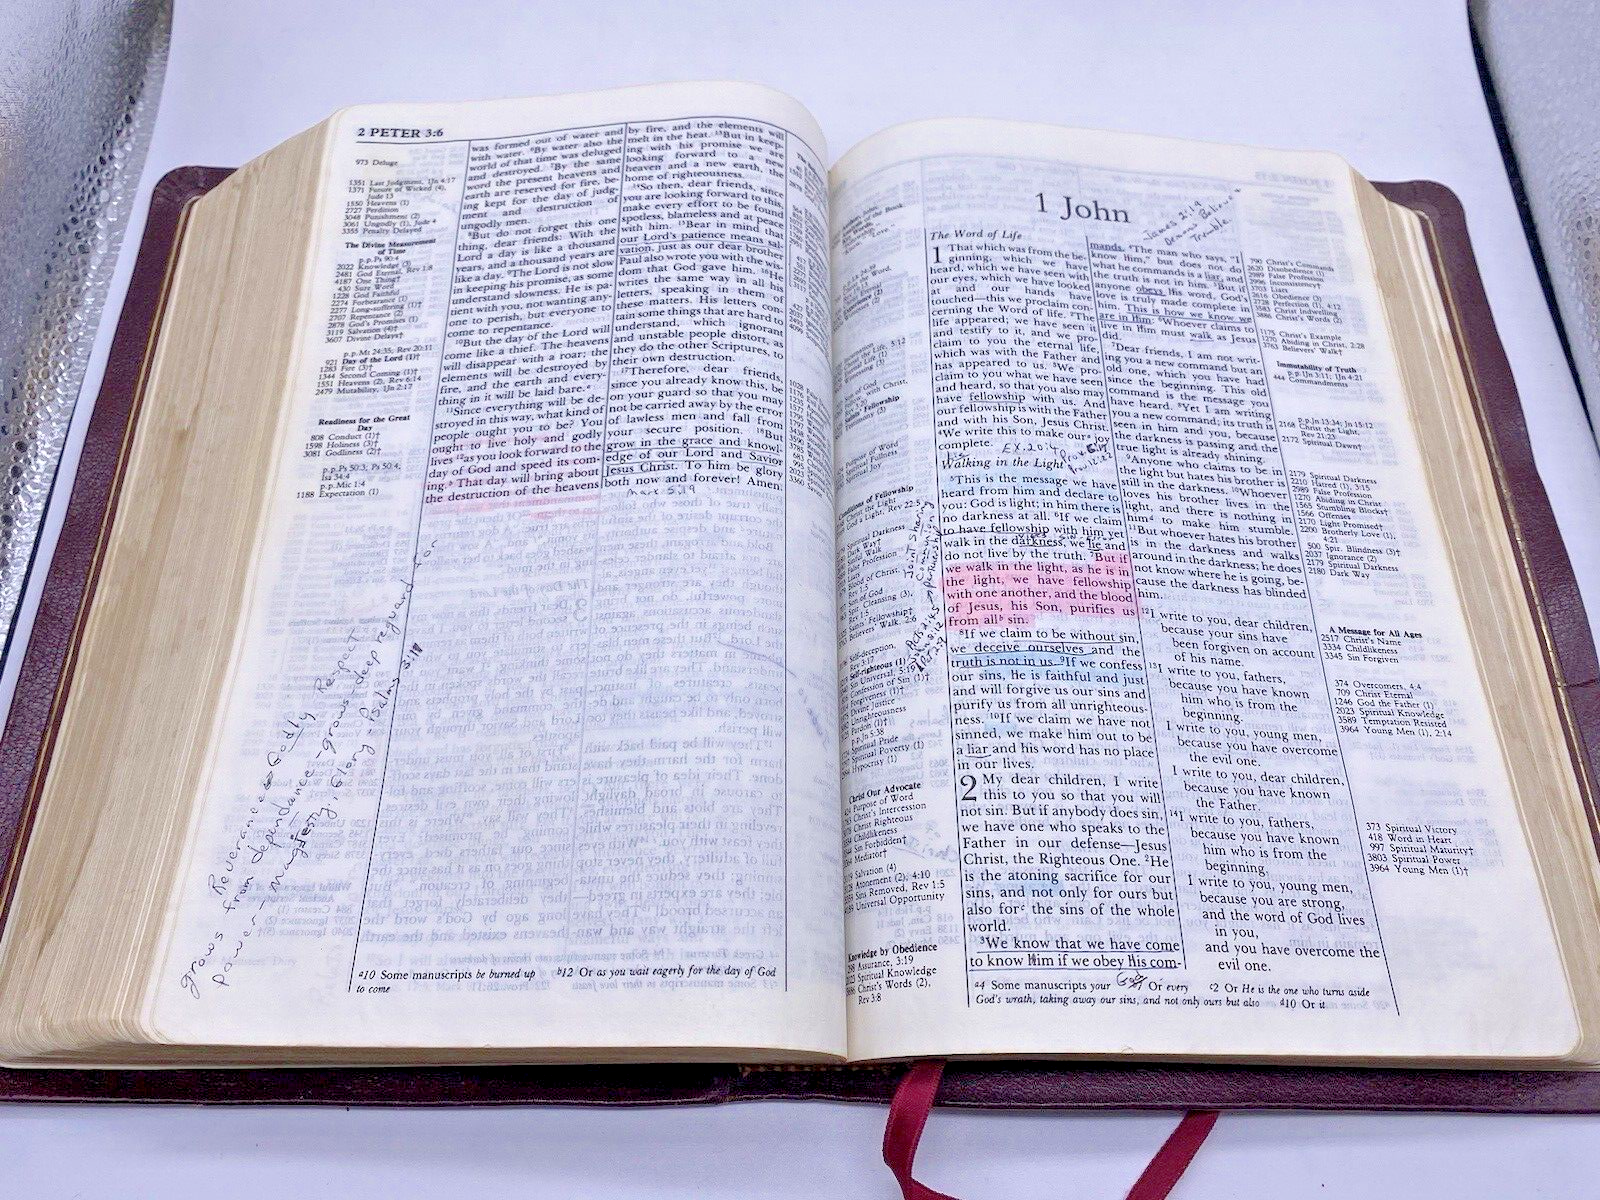 2 PETER 3:6
973 Deluge
1351 Last Judgment, 1Jn 4:17
1371 Future of Wicked (4),
Jude 13
1550 Heavens (1)
2727 Perdition
3048 Punishment (2)
3061 Ungodly (1), Jude 4
3355 Penalty Delayed
The Divine Measurement
of Time
p.p. Ps 90:4
2022 Knowledge (3)
2481 God Eternal, Rev 1:8
4187 One Thing†
430 Sure Word
1228 God Faithful
2274 Forbearance (1)
2277 Long-suffering (1)†
2707 Repentance (2)
2878 God's Promises (1)
3119 Salvation (4)†
3607 Divine Delays†
p.p. Mt 24:35; Rev 20:11
921 Day of the Lord (1)†
1283 Fire (3)†
1344 Second Coming (1)†
1551 Heavens (2), Rev 6:14
2479 Mutability, 1Jn 2:17
Readiness for the Great
Day
808 Conduct (1)†
1598 Holiness (3)†
3081 Godliness (2)†
p.p. Ps 50:3; Ps 50:4;
Isa 34:4
p.p. Mic 1:4
1188 Expectation (1)
was formed out of water and
with water. ⁶By water also the
world of that time was deluged
and destroyed. ⁷By the same
word the present heavens and
earth are reserved for fire, be-
ing kept for the day of judg-
ment and destruction of
ungodly men.
⁸But do not forget this one
thing, dear friends: With the
Lord a day is like a thousand
years, and a thousand years are
like a day. ⁹The Lord is not slow
in keeping his promise, as some
understand slowness. He is pa-
tient with you, not wanting any-
one to perish, but everyone to
come to repentance.
¹⁰But the day of the Lord will
come like a thief. The heavens
will disappear with a roar; the
elements will be destroyed by
fire, and the earth and every-
thing in it will be laid bare.ᵃ
¹¹Since everything will be de-
stroyed in this way, what kind of
people ought you to be? You
ought to live holy and godly
lives ¹²as you look forward to the
day of God and speed its com-
ing.ᵇ That day will bring about
the destruction of the heavens
by fire, and the elements will
melt in the heat. ¹³But in keep-
ing with his promise we are
looking forward to a new
heaven and a new earth, the
home of righteousness.
¹⁴So then, dear friends, since
you are looking forward to this,
make every effort to be found
spotless, blameless and at peace
with him. ¹⁵Bear in mind that
our Lord's patience means sal-
vation, just as our dear brother
Paul also wrote you with the wis-
dom that God gave him. ¹⁶He
writes the same way in all his
letters, speaking in them of
these matters. His letters con-
tain some things that are hard to
understand, which ignorant
and unstable people distort, as
they do the other Scriptures, to
their own destruction.
¹⁷Therefore, dear friends,
since you already know this, be
on your guard so that you may
not be carried away by the error
of lawless men and fall from
your secure position. ¹⁸But
grow in the grace and knowl-
edge of our Lord and Savior
Jesus Christ. To him be glory
both now and forever! Amen.
Mark 5:19
grows from Reverance Godly Respect
power from dependance - grows deep regard for
Majesty, Glory - Psalms
ᵃ10 Some manuscripts be burned up ᵇ12 Or as you wait eagerly for the day of God
to come
1 John
James 2:19
Demons Believe
Tremble.
The Word of Life
1 That which was from the be-
ginning, which we have
heard, which we have seen with
our eyes, which we have looked
at and our hands have
touched—this we proclaim con-
cerning the Word of life. ²The
life appeared; we have seen it
and testify to it, and we pro-
claim to you the eternal life,
which was with the Father and
has appeared to us. ³We pro-
claim to you what we have seen
and heard, so that you also may
have fellowship with us. And
our fellowship is with the Father
and with his Son, Jesus Christ.
⁴We write this to make ourᵃ joy
complete.
Ex. 20:
Walking in the Light
⁵This is the message we have
heard from him and declare to
you: God is light; in him there is
no darkness at all. ⁶If we claim
to have fellowship with him yet
walk in the darkness, we lie and
do not live by the truth. ⁷But if
we walk in the light, as he is in
the light, we have fellowship
with one another, and the blood
of Jesus, his Son, purifies us
from allᵇ sin.
⁸If we claim to be without sin,
we deceive ourselves and the
truth is not in us. ⁹If we confess
our sins, he is faithful and just
and will forgive us our sins and
purify us from all unrighteous-
ness. ¹⁰If we claim we have not
sinned, we make him out to be
a liar and his word has no place
in our lives.
2 My dear children, I write
this to you so that you will
not sin. But if anybody does sin,
we have one who speaks to the
Father in our defense—Jesus
Christ, the Righteous One. ²He
is the atoning sacrifice for our
sins, and not only for ours but
also forᶜ the sins of the whole
world.
³We know that we have come
to know Him if we obey His com-
mands. ⁴The man who says, "I
know Him," but does not do
what he commands is a liar, and
the truth is not in him. ⁵But if
anyone obeys His word, God's
love is truly made complete in
him. This is how we know we
are in Him: ⁶Whoever claims to
live in Him must walk as Jesus
did.
⁷Dear friends, I am not writ-
ing you a new command but an
old one, which you have had
since the beginning. This old
command is the message you
have heard. ⁸Yet I am writing
you a new command; its truth is
seen in him and you, because
the darkness is passing and the
true light is already shining.
⁹Anyone who claims to be in
the light but hates his brother is
still in the darkness. ¹⁰Whoever
loves his brother lives in the
light, and there is nothing in
himᵈ to make him stumble.
¹¹But whoever hates his brother
is in the darkness and walks
around in the darkness; he does
not know where he is going, be-
cause the darkness has blinded
him.
¹²I write to you, dear children,
because your sins have
been forgiven on account
of his name.
¹³I write to you, fathers,
because you have known
him who is from the
beginning.
I write to you, young men,
because you have overcome
the evil one.
I write to you, dear children,
because you have known
the Father.
¹⁴I write to you, fathers,
because you have known
him who is from the
beginning.
I write to you, young men,
because you are strong,
and the word of God lives
in you,
and you have overcome the
evil one.
790 Christ's Commands
2620 Disobedience
2989 False Profession
2996 Inconsistency†
1703 Liars
2616 Obedience (3)
2728 Perfection (1), 4:12
3583 Christ Indwelling
3886 Christ's Words (2)
1175 Christ's Example
1270 Abiding in Christ, 2:28
3763 Believers' Walk†
Immutability of Truth
p.p. Jn 3:11; 1Jn 4:21
444 Commandments
p.p. Jn 13:34; Jn 15:12
2168 Christ the Light,
Rev 21:23
2172 Spiritual Dawn†
2179 Spiritual Darkness
2210 Hatred (1), 3:15
2989 False Profession
1270 Abiding in Christ
1565 Stumbling Blocks†
1566 Offenses
2170 Light Promised†
2200 Brotherly Love (1),
4:21
500 Spir. Blindness (3)†
2037 Ignorance (2)
2179 Spiritual Darkness
2180 Dark Way
A Message for All Ages
2517 Christ's Name
3334 Childlikeness
3345 Sin Forgiven
374 Overcomers, 4:4
709 Christ Eternal
1246 God the Father (1)
2023 Spiritual Knowledge
3589 Temptation Resisted
3964 Young Men (1), 2:14
373 Spiritual Victory
418 Word in Heart
997 Spiritual Maturity†
3803 Spiritual Power
3964 Young Men (1)†
Conditions of Fellowship
Christ Our Advocate
Purpose of Word
Christ's Intercession
Christ Righteous
Childlikeness
Sin Forbidden†
Mediator†
Salvation (4)
Atonement (2), 4:10
Sins Removed, Rev 1:5
Universal Opportunity
Knowledge by Obedience
Assurance, 3:19
Spiritual Knowledge
Christ's Words (2),
Rev 3:8
ᵃ4 Some manuscripts your ᵇ7 Or every ᶜ2 Or He is the one who turns aside
God's wrath, taking away our sins, and not only ours but also ᵈ10 Or it